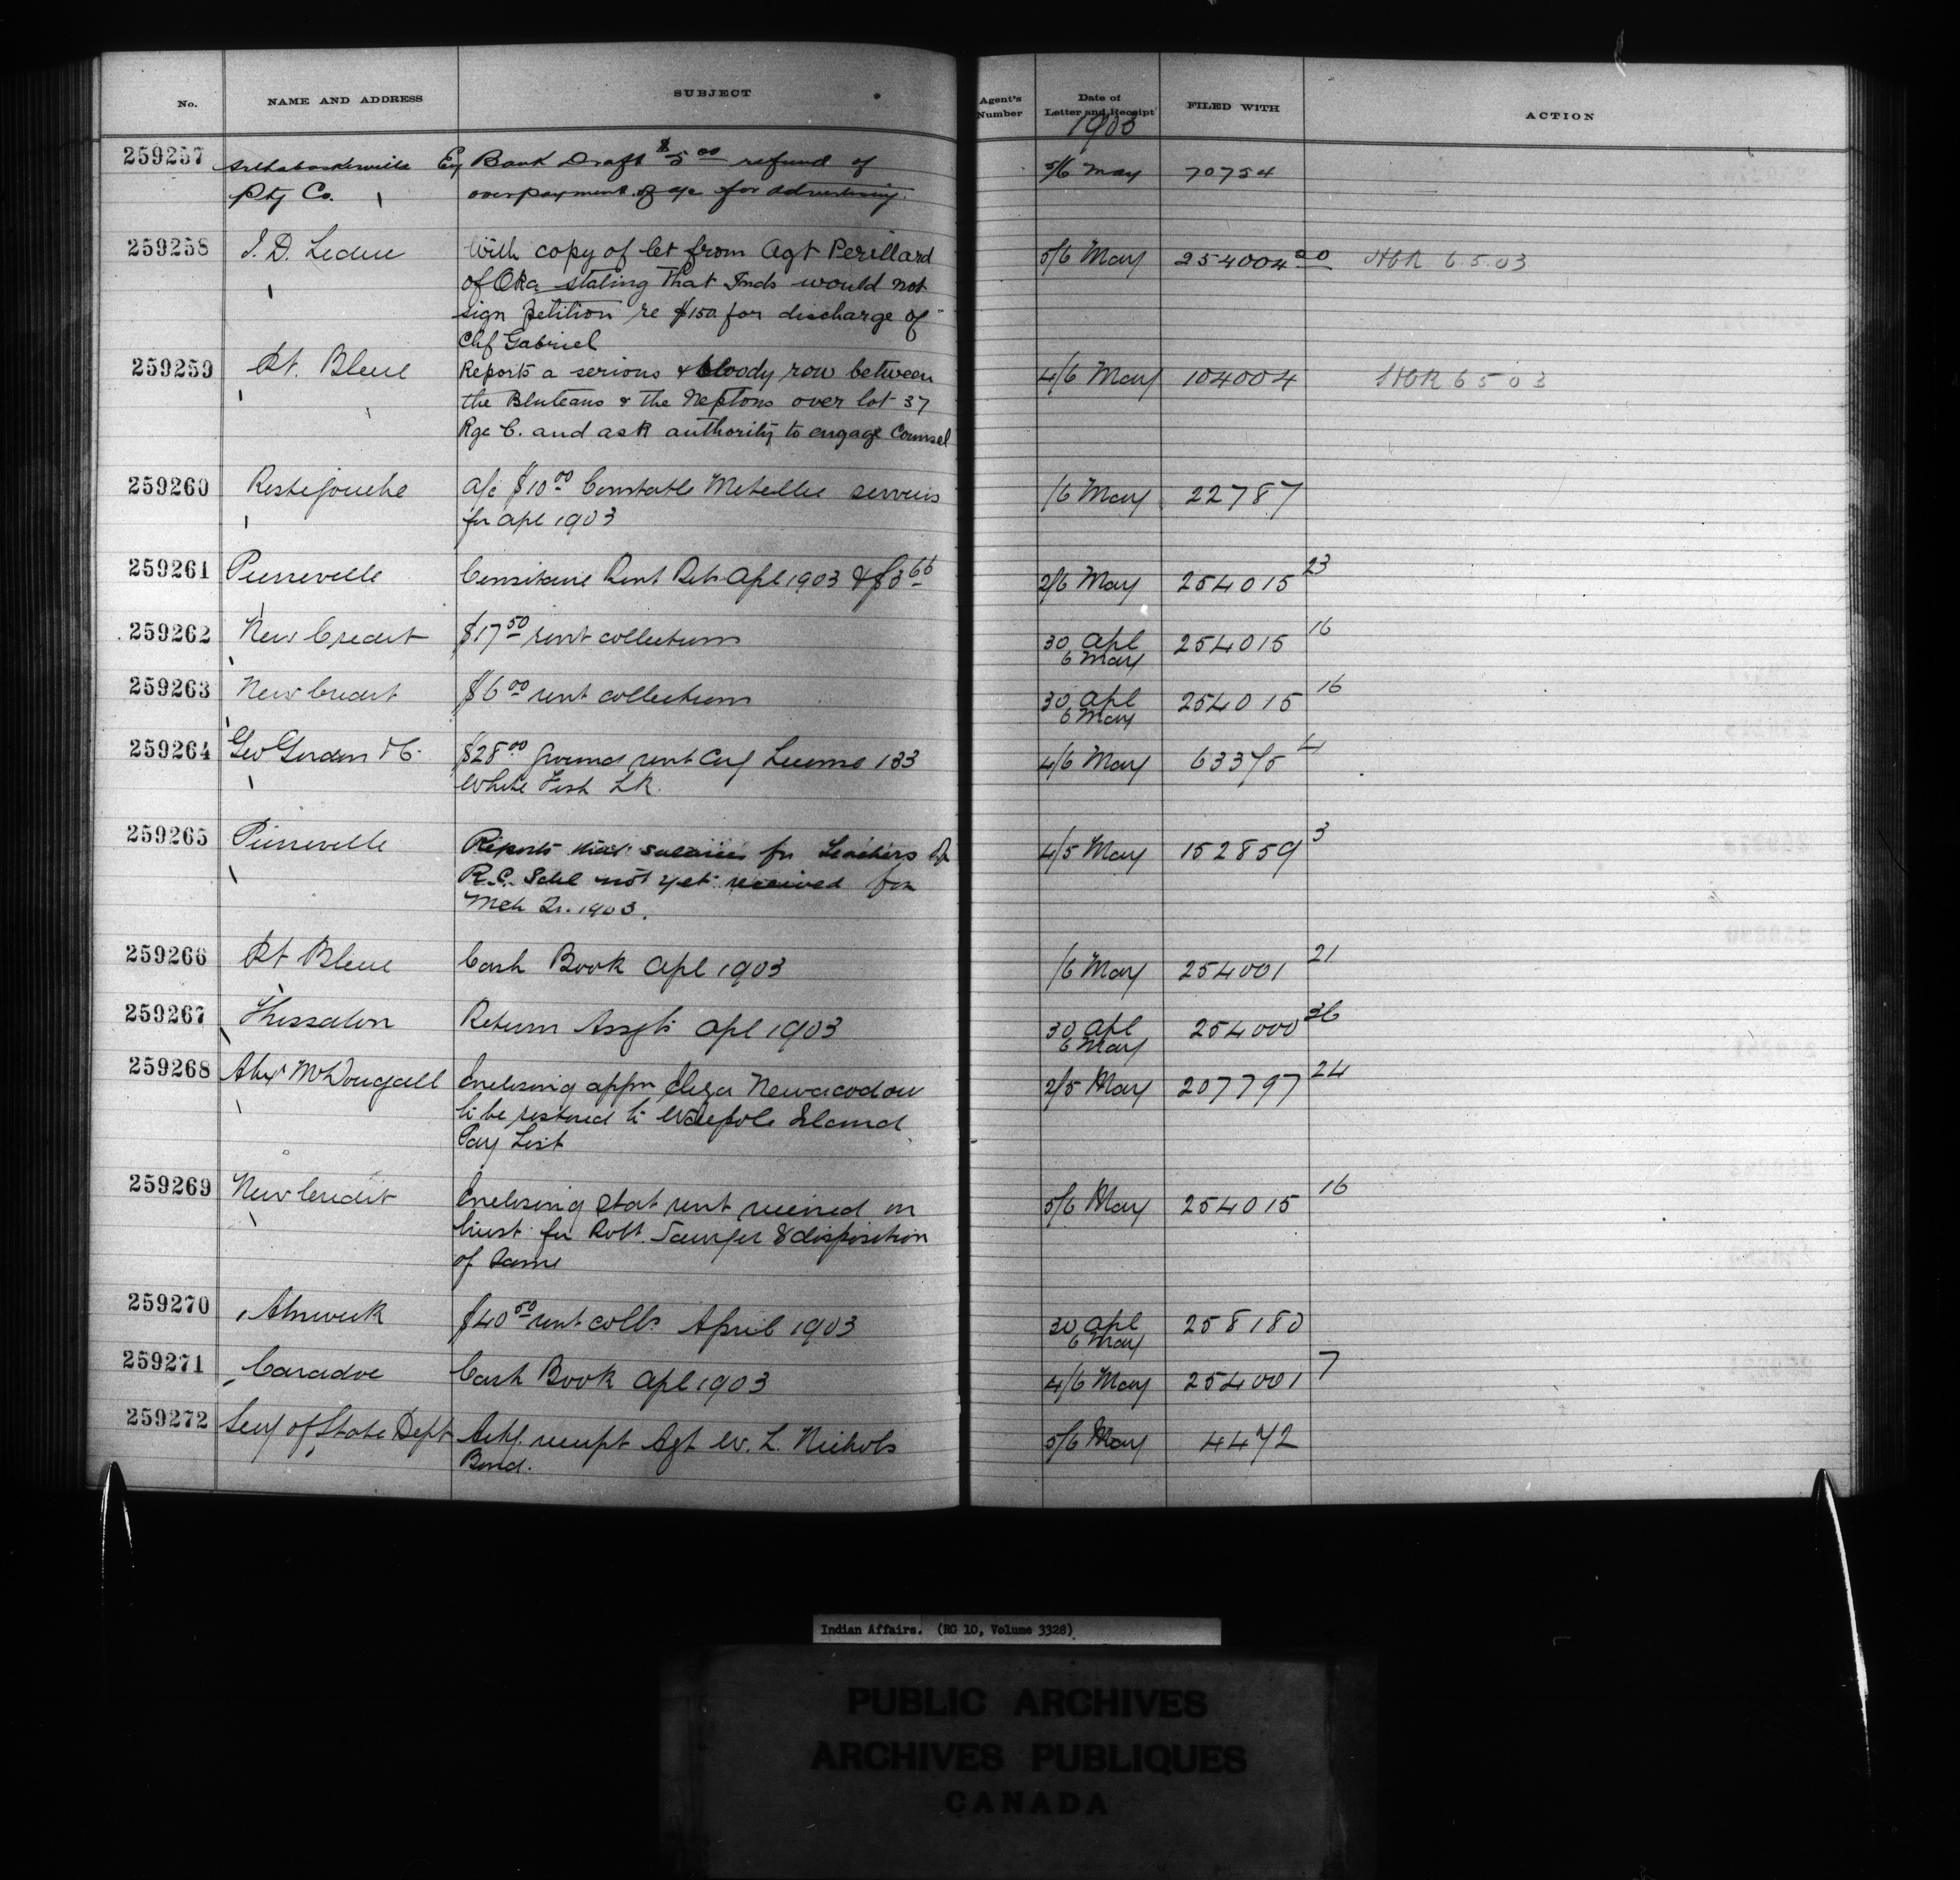 No. NAME AND ADDRESS SUBJECT Agent's Number Date of Letter and Receipt FILED WITH ACTION
1903
259257 Arthabaskaville Ex Bank Draft $5 00 refund of 5/6 May 70754
Ptg Co. overpayment of a/c for advertising.
259258 J. D. Leduc With copy of let from Agt Perillard 5/6 May 254004 20 HCR 6.5.03
of Oka stating that Inds would not
sign petition re $150 for discharge of
Chf Gabriel
259259 Pt. Bleue Reports a serious & bloody row between 4/6 May 104004 HCR 6 5 03
the Bluteaus & the Neptons over lot 37
Rge C. and ask authority to engage Counsel
259260 Restigouche a/c $10 00 Constable Metallic services /6 May 22787
for Apl 1903
259261 Pierreville Rent Ret Apl 1903 & 2/6 May 254015 23
259262 New Credit $17 50 rent collections 30 Apl 254015 16
6 May
259263 New Credit $6 00 rent collections 30 Apl 254015 16
6 May
259264 Geo Gordon & C. $28 00 ground rent License 133 4/6 May 63375 4
White Fish Lk.
259265 Pierreville Reports that salaries for Teachers 4/5 May 152859 3
R.C. Schl not yet received for
Mch Qr. 1903.
259266 Pt Bleue Cash Book Apl 1903 /6 May 254001 21
259267 Thessalon Return Assgts Apl 1903 30 Apl 254000 36
6 May
259268 Alex McDougall Enclosing appn Eliza Newacodow 2/5 May 207797 24
to be restored to Walpole Island
Pay List
259269 New Credit Enclosing Stat rent received in 5/6 May 254015 16
trust for Robt. Sawyer & disposition
of same
259270 Alnwick $40 50 rent colls April 1903 30 Apl 258180
6 May
259271 Caradoc Cash Book Apl 1903 4/6 May 254001 7
259272 Secy of State Dept Ackg. receipt Agt W. L. Nichols 5/6 May 4472
Bond.
Indian Affairs. (RG 10, Volume 3328)
PUBLIC ARCHIVES
ARCHIVES PUBLIQUES
CANADA